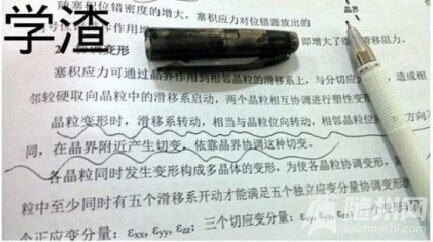 学渣
随塞积位错密度的增大，塞积应力对位错源放出的
即增大了
移阻力。
变形
晶界
塞积应力可通过晶界作用到相邻晶粒的滑移系上，与分切应
造成相
邻较硬取向晶粒中的滑移系启动，两个晶粒相互协调进行塑性变
晶粒变形时，滑移系转动，相当与晶粒位向转动，相邻晶粒位
方向不
同，在晶界附近产生切变，依靠晶界协调这种切变。
各晶粒同时发生变形构成多晶体的变形，为使各晶粒协调变形，
粒中至少同时有五个滑移系开动才能满足五个独立应变分量协调变形
个正应变分量：εxx, εyy, εzz；三个切应变分量：εxy,
随州网
suizhoushi.com